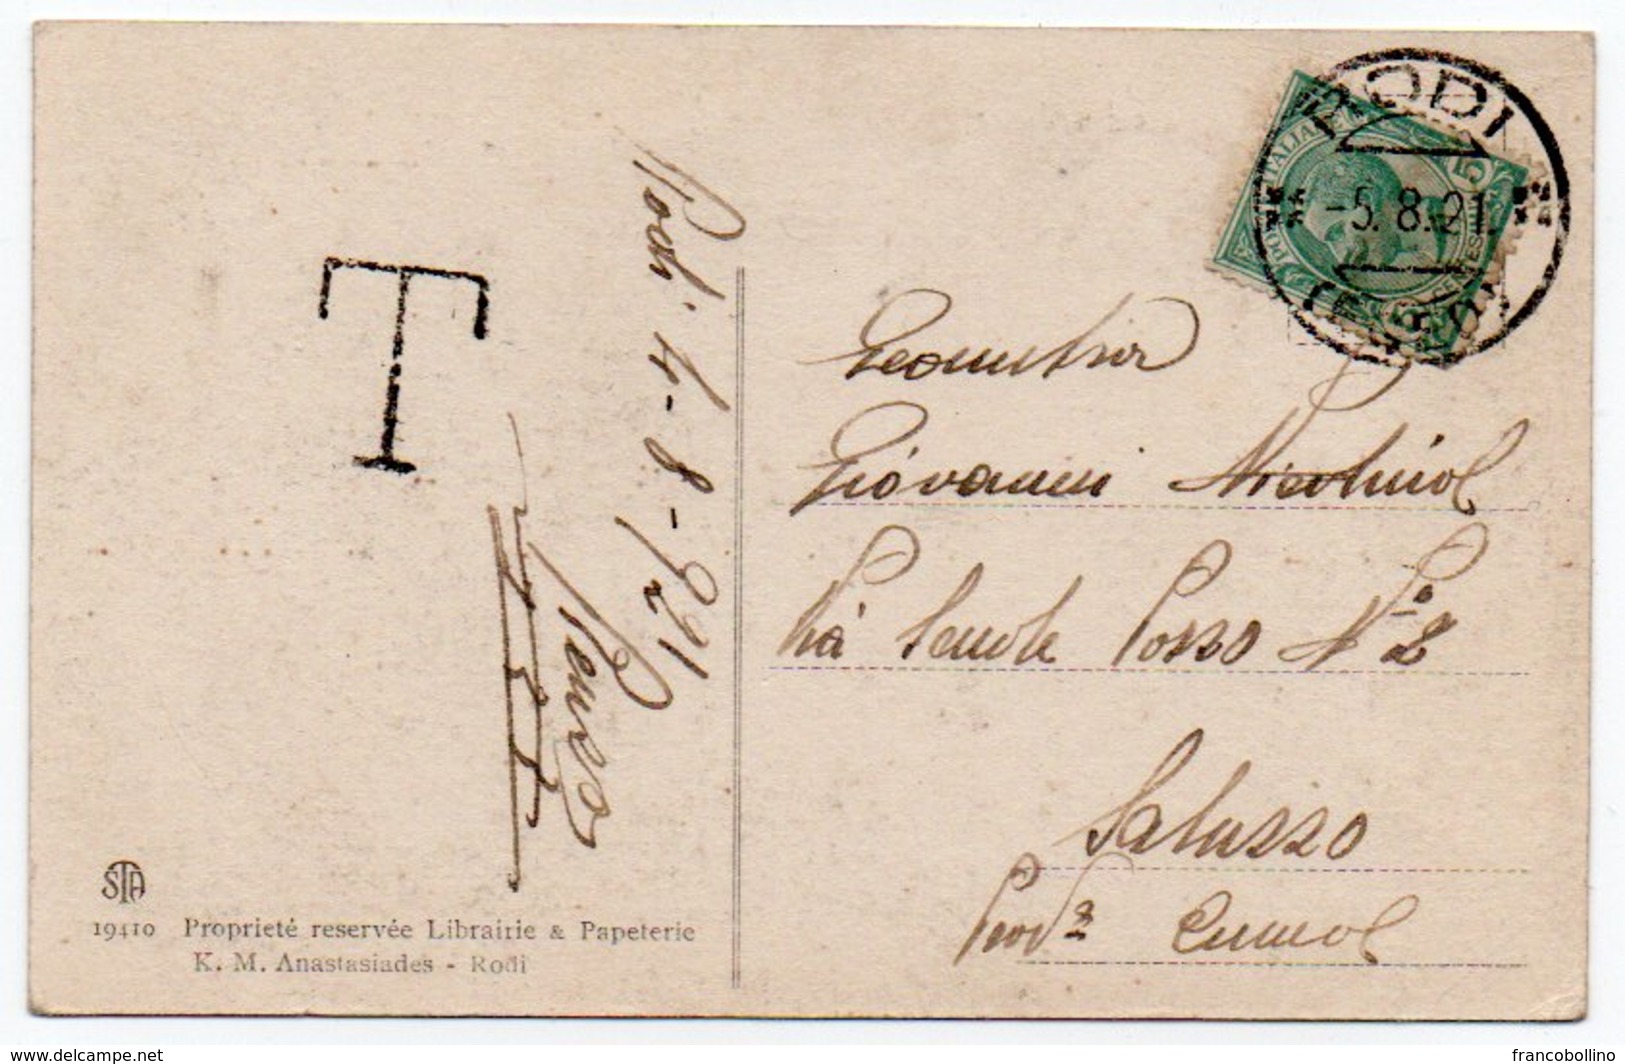 T
Rodi 4-8-921
Renzo
RODI
-5.8.21
(EGEO)
POSTE ITALIANE
5
Geometra
Giovanni
Via Senole Pozzo N° 2
Saluzzo
Prov. Cuneo
STA
19410 Proprieté reservée Librairie & Papeterie
K. M. Anastasiades - Rodi
www.delcampe.net
francobollino